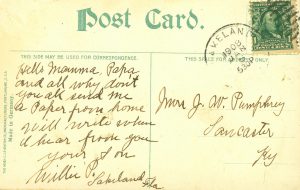 Post Card.
THIS SIDE MAY BE USED FOR CORRESPONDENCE.
THIS SPACE IS FOR
Made in Germany
Hello Mamma, Papa
and all why don't
you all send me
a Paper from home
will write when
I hear from you
your Son
Willie P.
Lakeland Fla
Mrs J. W. Pumphrey
Lancaster
Ky